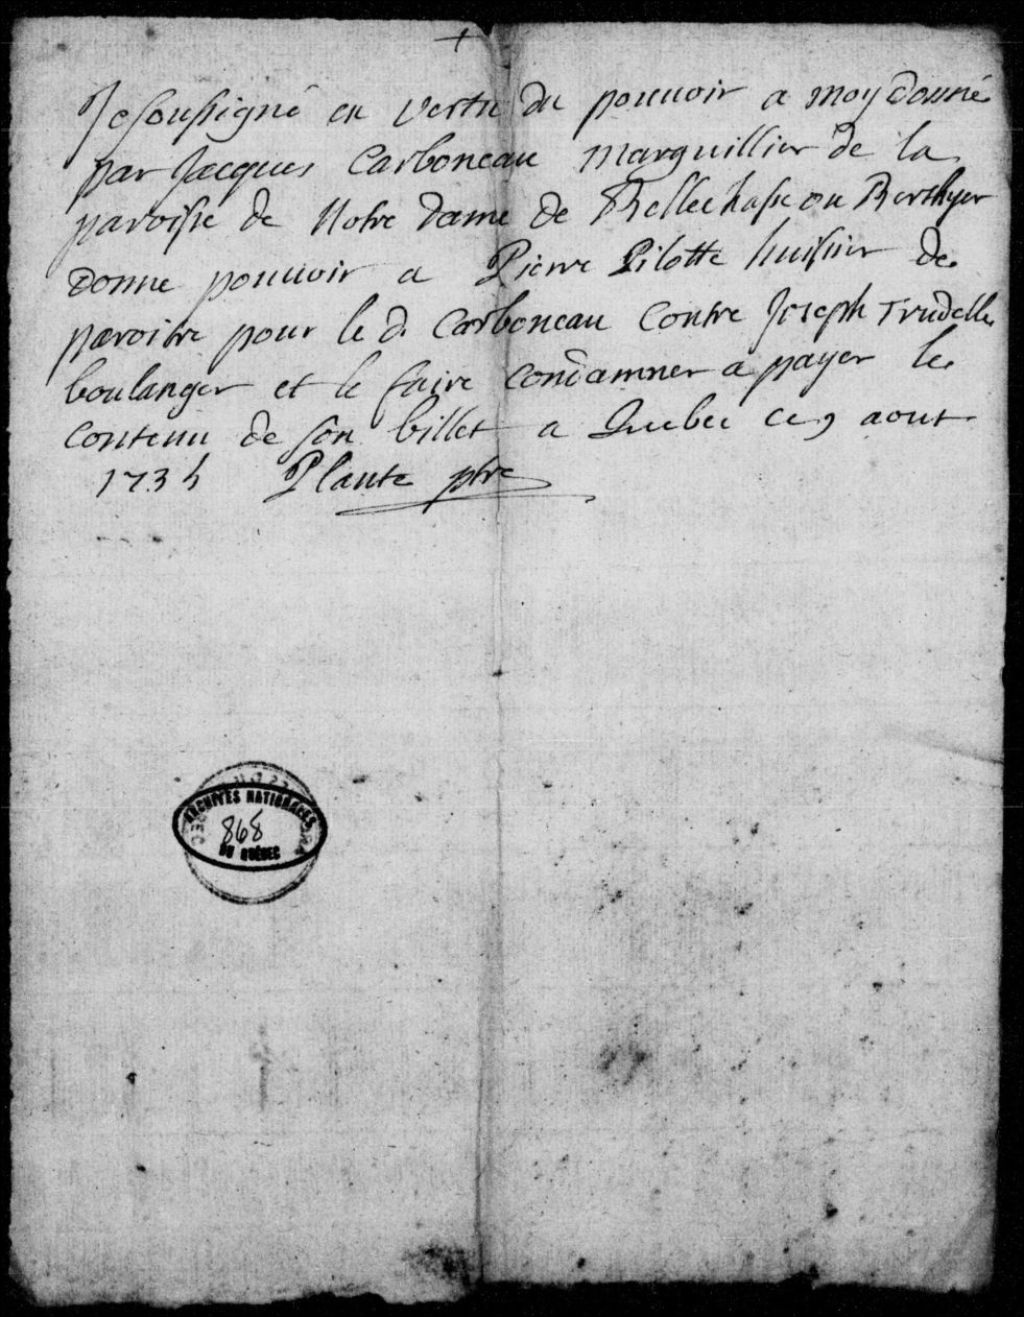 +
Je soussigné en vertu du pouuoir a moy donné
par Jacques Carboneau marguillier de la
paroisse de Notre Dame de Bellechasse ou Berthyer
donne pouuoir a Pierre Pilotte huissier de
paroitre pour le d. Carboneau Contre Joseph Trudelle
boulanger et le faire condamner a payer le
contenu de son billet a Quebec ce 9 aout
173 Plante ptre
ARCHIVES NATIONALES
868
DU QUÉBEC